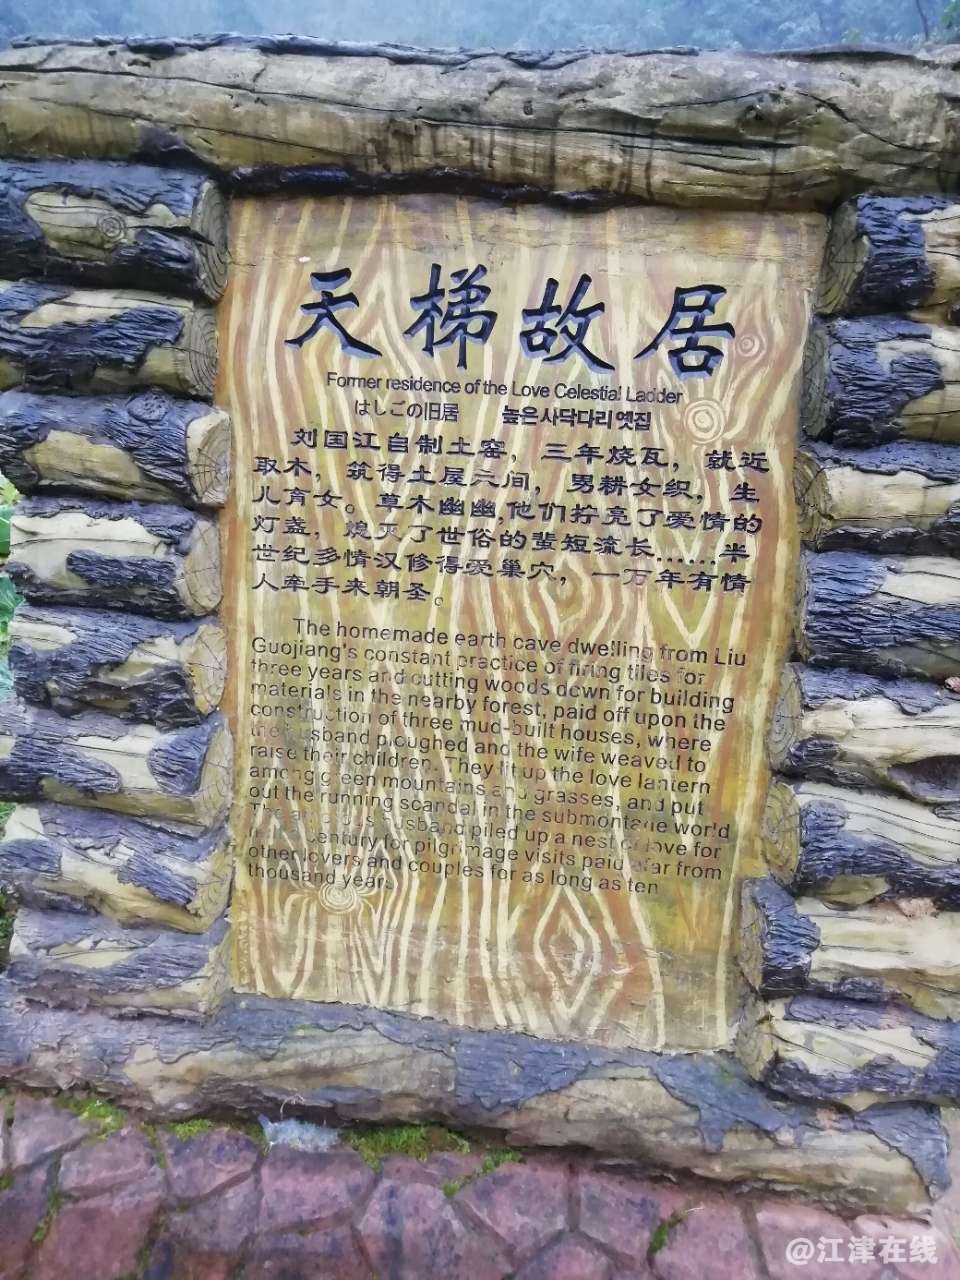 天梯故居
Former residence of the Love Celestial Ladder
はしごの旧居 높은 사닥다리 옛집
刘国江自制土窑，三年烧瓦，就近
取木，筑得土屋三间，男耕女织，生
儿育女。草木幽幽,他们拧亮了爱情的
灯盏，熄灭了世俗的蜚短流长……半
世纪多情汉修得爱巢穴，一万年有情
人牵手来朝圣。
The homemade earth cave dwelling from Liu
Guojiang's constant practice of firing tiles for
three years and cutting woods down for building
materials in the nearby forest, paid off upon the
construction of three mud-built houses, where
the husband ploughed and the wife weaved to
raise their children. They lit up the love lantern
among green mountains and grasses, and put
out the running scandal in the submontane world
The husband piled up a nest of love for
century for pilgrimage visits paid afar from
other lovers and couples for as long as ten
thousand year.
@江津在线